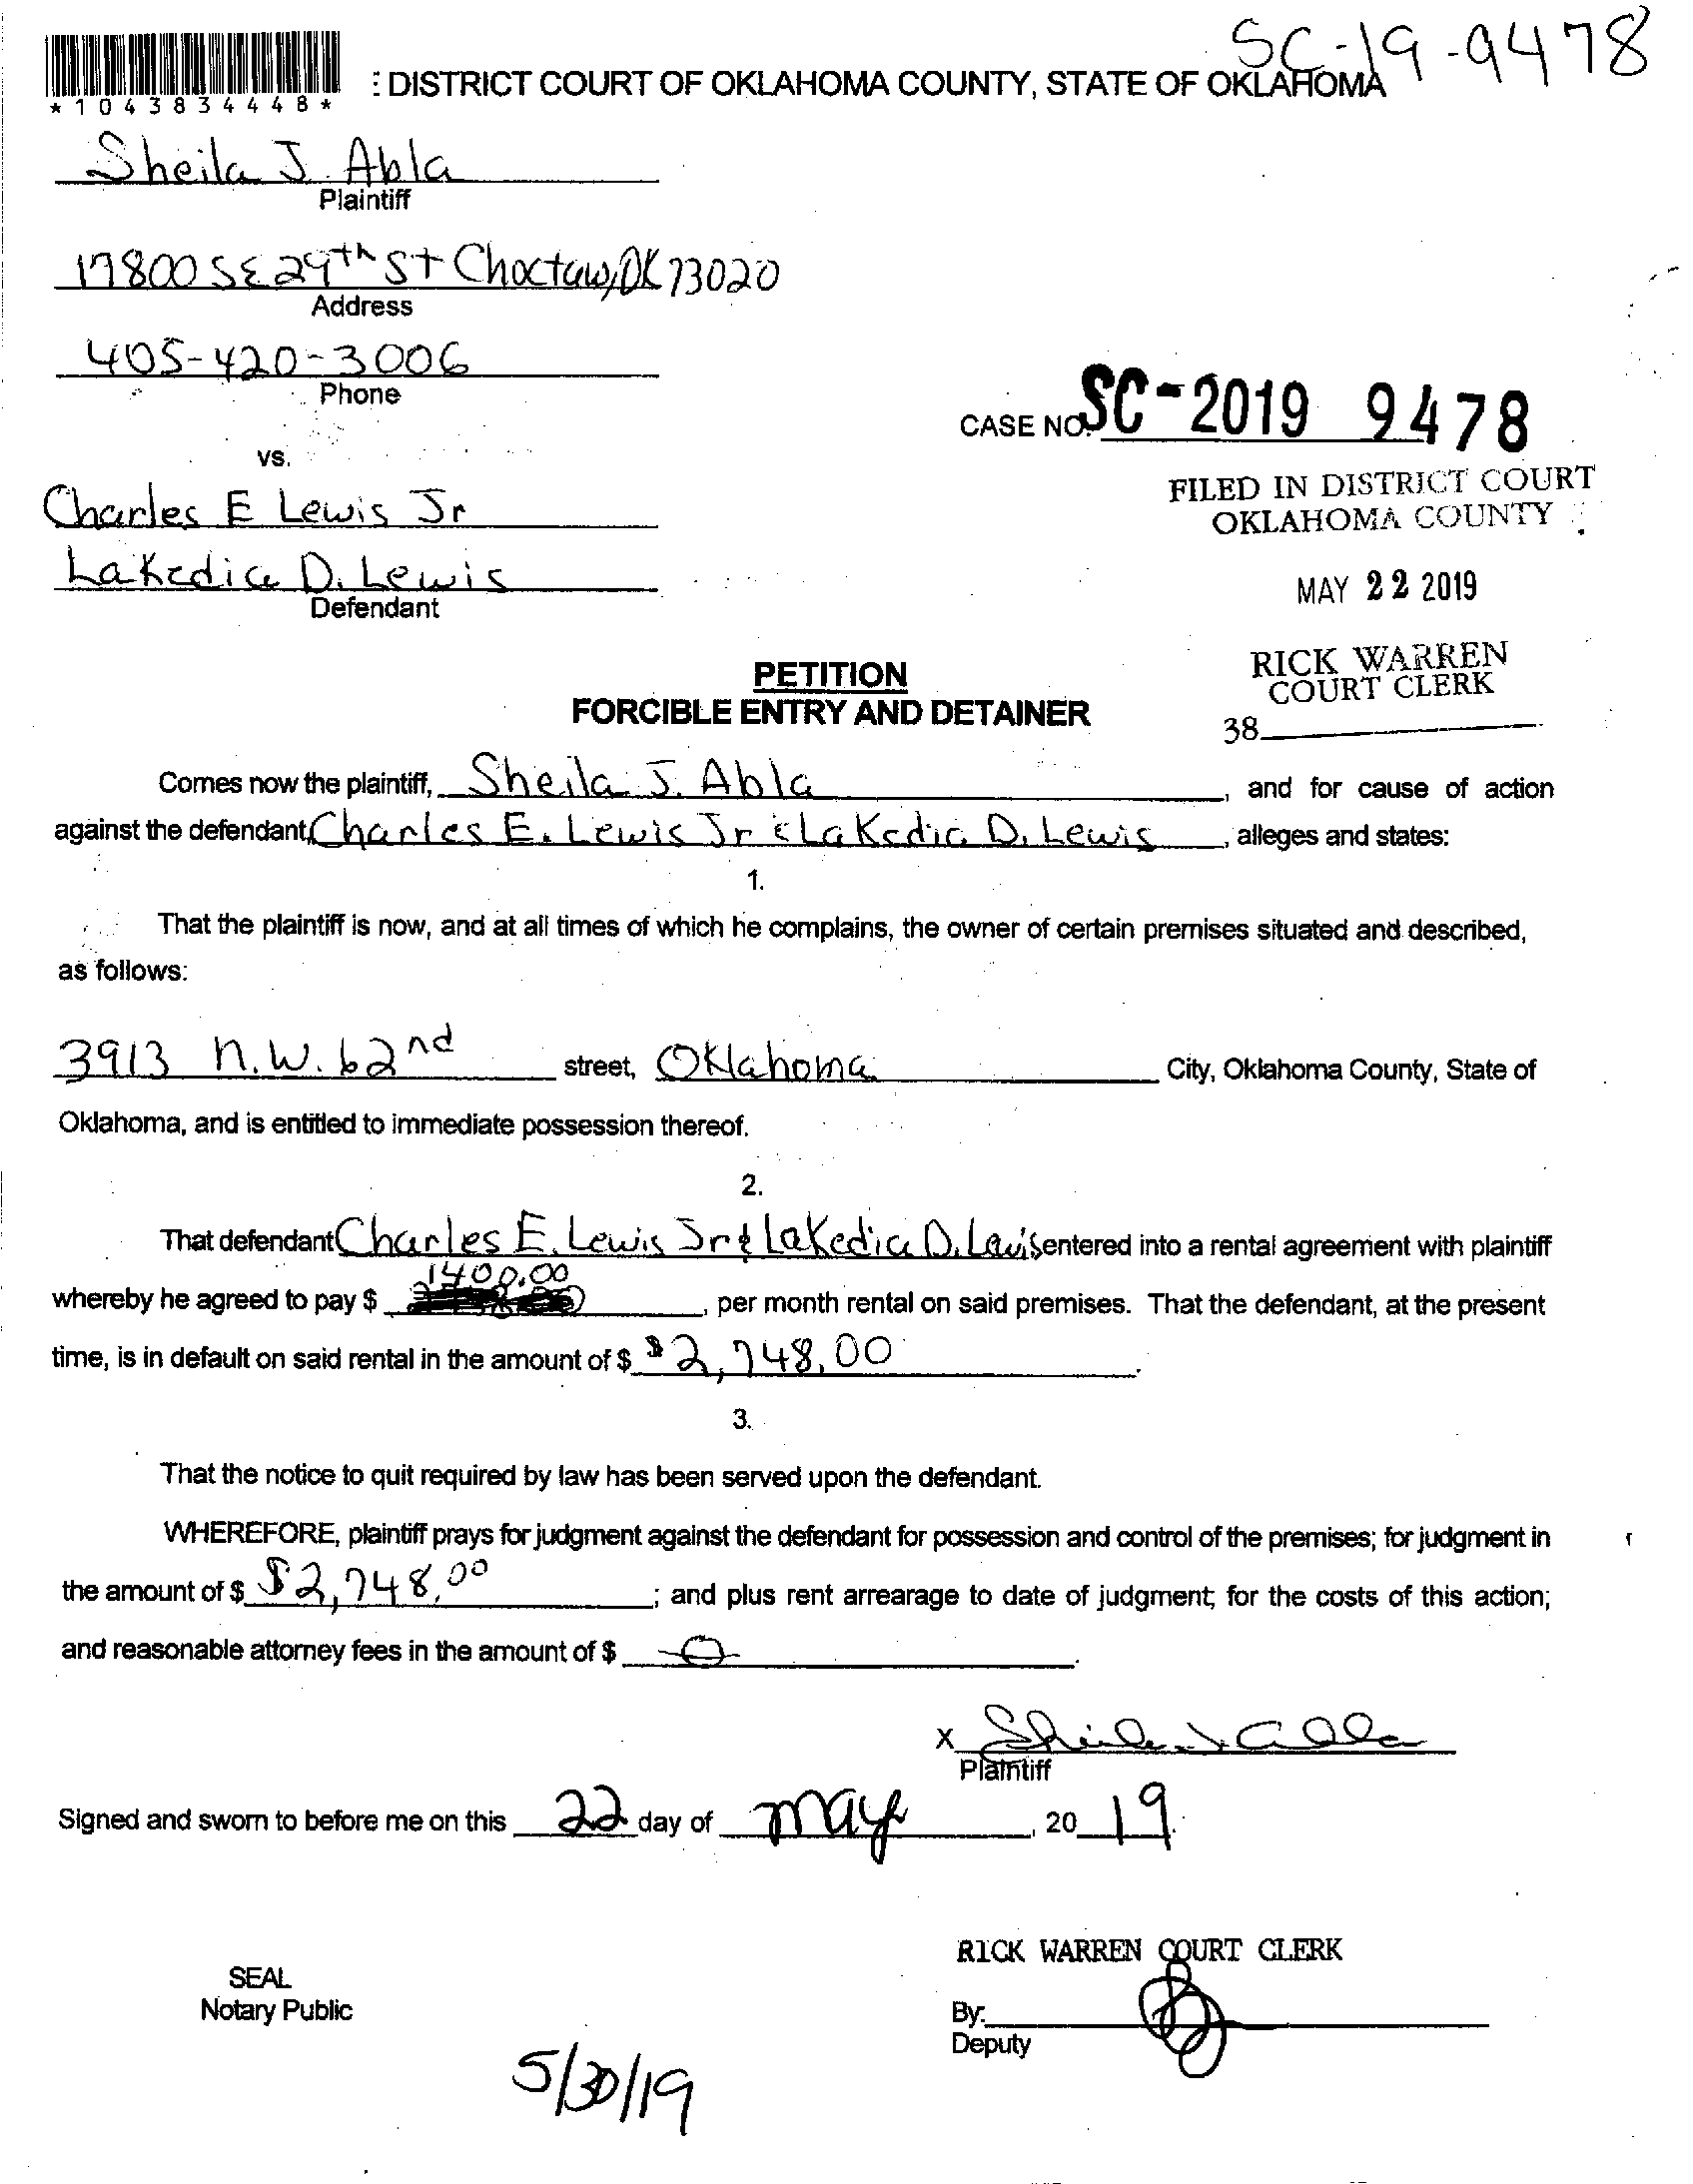 SC-19-9478
: DISTRICT COURT OF OKLAHOMA COUNTY, STATE OF OKLAHOMA
*1043834448*
Sheila J. Abla
Plaintiff
17800 SE 29th St Choctaw, OK 73020
Address
405-420-3006
Phone
CASE NO. SC-2019 9478
vs.
FILED IN DISTRICT COURT
OKLAHOMA COUNTY
Charles E Lewis Jr
Lakedica D. Lewis
Defendant
MAY 22 2019
RICK WARREN
COURT CLERK
38
PETITION
FORCIBLE ENTRY AND DETAINER
Comes now the plaintiff, Sheila J. Abla, and for cause of action
against the defendant, Charles E. Lewis Jr & LaKedia D. Lewis, alleges and states:
1.
That the plaintiff is now, and at all times of which he complains, the owner of certain premises situated and described,
as follows:
3913 N.W. 62nd street, Oklahoma City, Oklahoma County, State of
Oklahoma, and is entitled to immediate possession thereof.
2.
That defendant Charles E. Lewis Jr & LaKedica D. Lewis entered into a rental agreement with plaintiff
1400.00
whereby he agreed to pay $, per month rental on said premises. That the defendant, at the present
time, is in default on said rental in the amount of $ $2,748.00.
3.
That the notice to quit required by law has been served upon the defendant.
WHEREFORE, plaintiff prays for judgment against the defendant for possession and control of the premises; for judgment in
the amount of $ $2,748.00; and plus rent arrearage to date of judgment; for the costs of this action;
and reasonable attorney fees in the amount of $ 0.
X Sheila J Abla
Plaintiff
Signed and sworn to before me on this 22 day of may, 20 19.
RICK WARREN COURT CLERK
SEAL
Notary Public
By:
Deputy
5/30/19